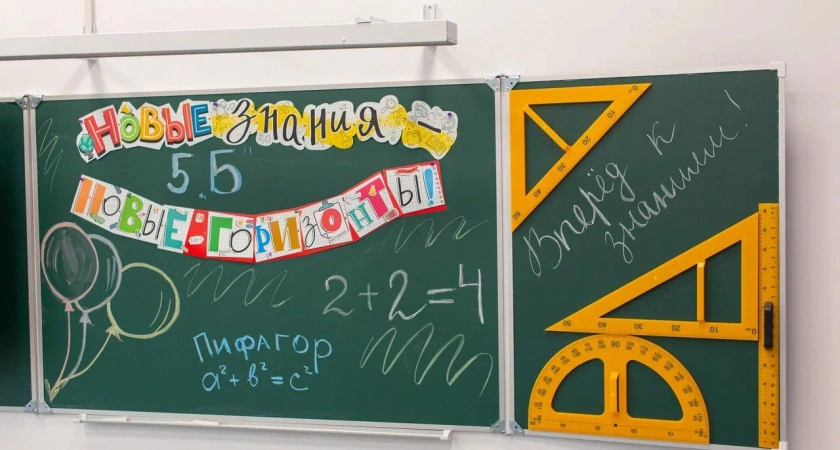 НОВЫЕ ЗНАНИЯ –
5 „Б"
НОВЫЕ ГОРИЗОНТЫ!
2+2=4
ПИФАГОР
a²+в²=c²
Вперёд к
знаниям!